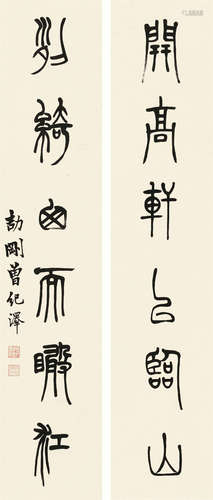 開高軒㠯臨山
列綺囪而瞰江
劼剛曾紀澤